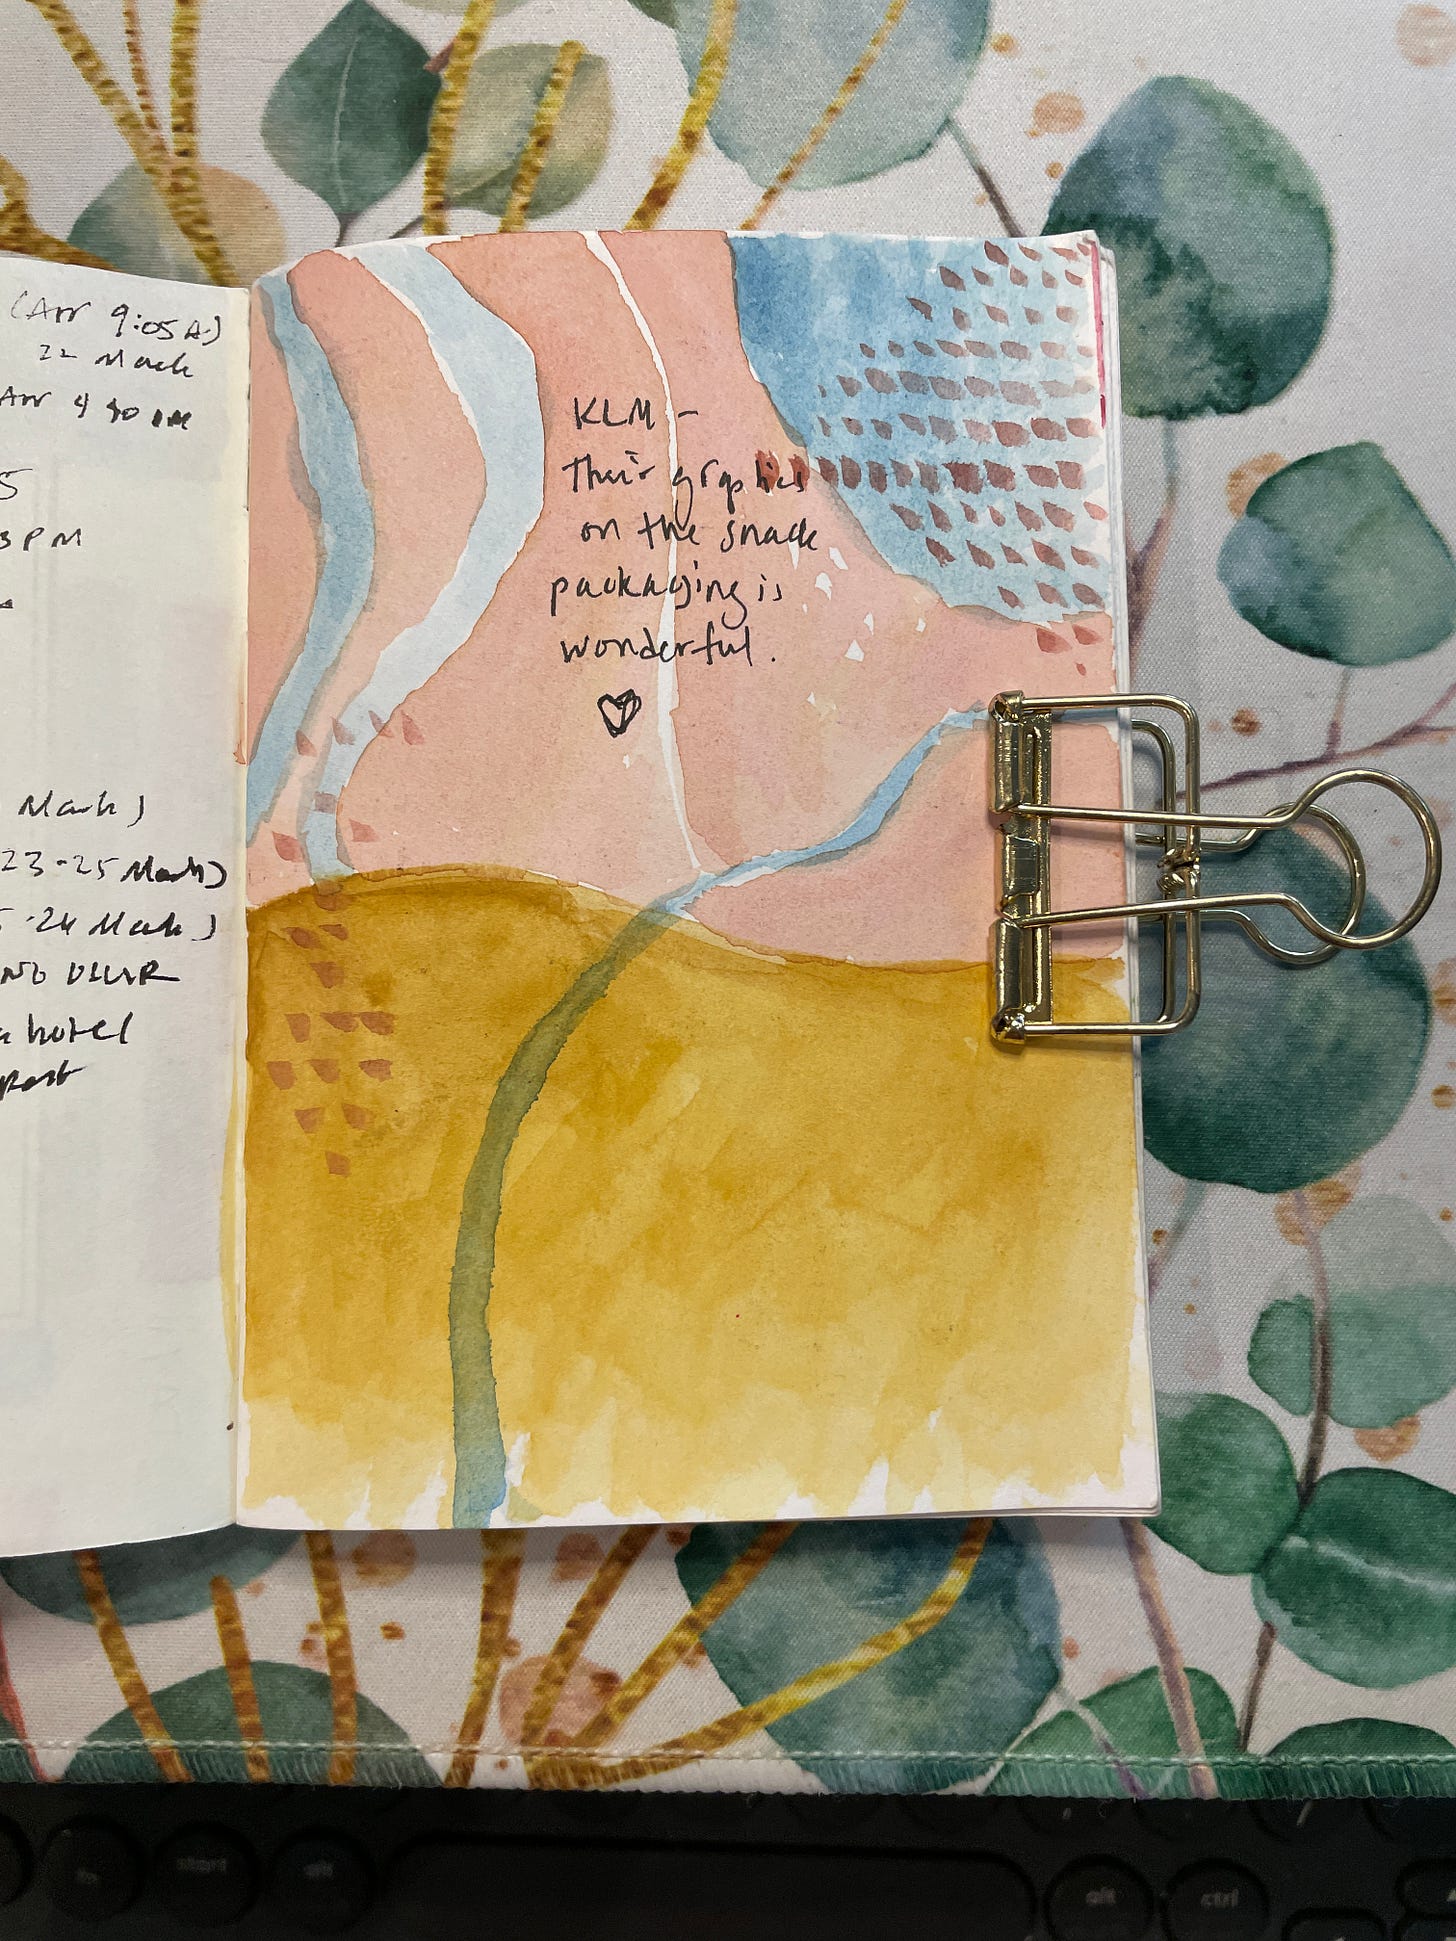 (Arr 9:05A)
22 March
Arr 4 40 PM
5
3 PM
March)
23-25 March)
5-26 March)
hotel
KLM -
Their graphics
on the snack
packaging is
wonderful.
alt
alt
ctrl